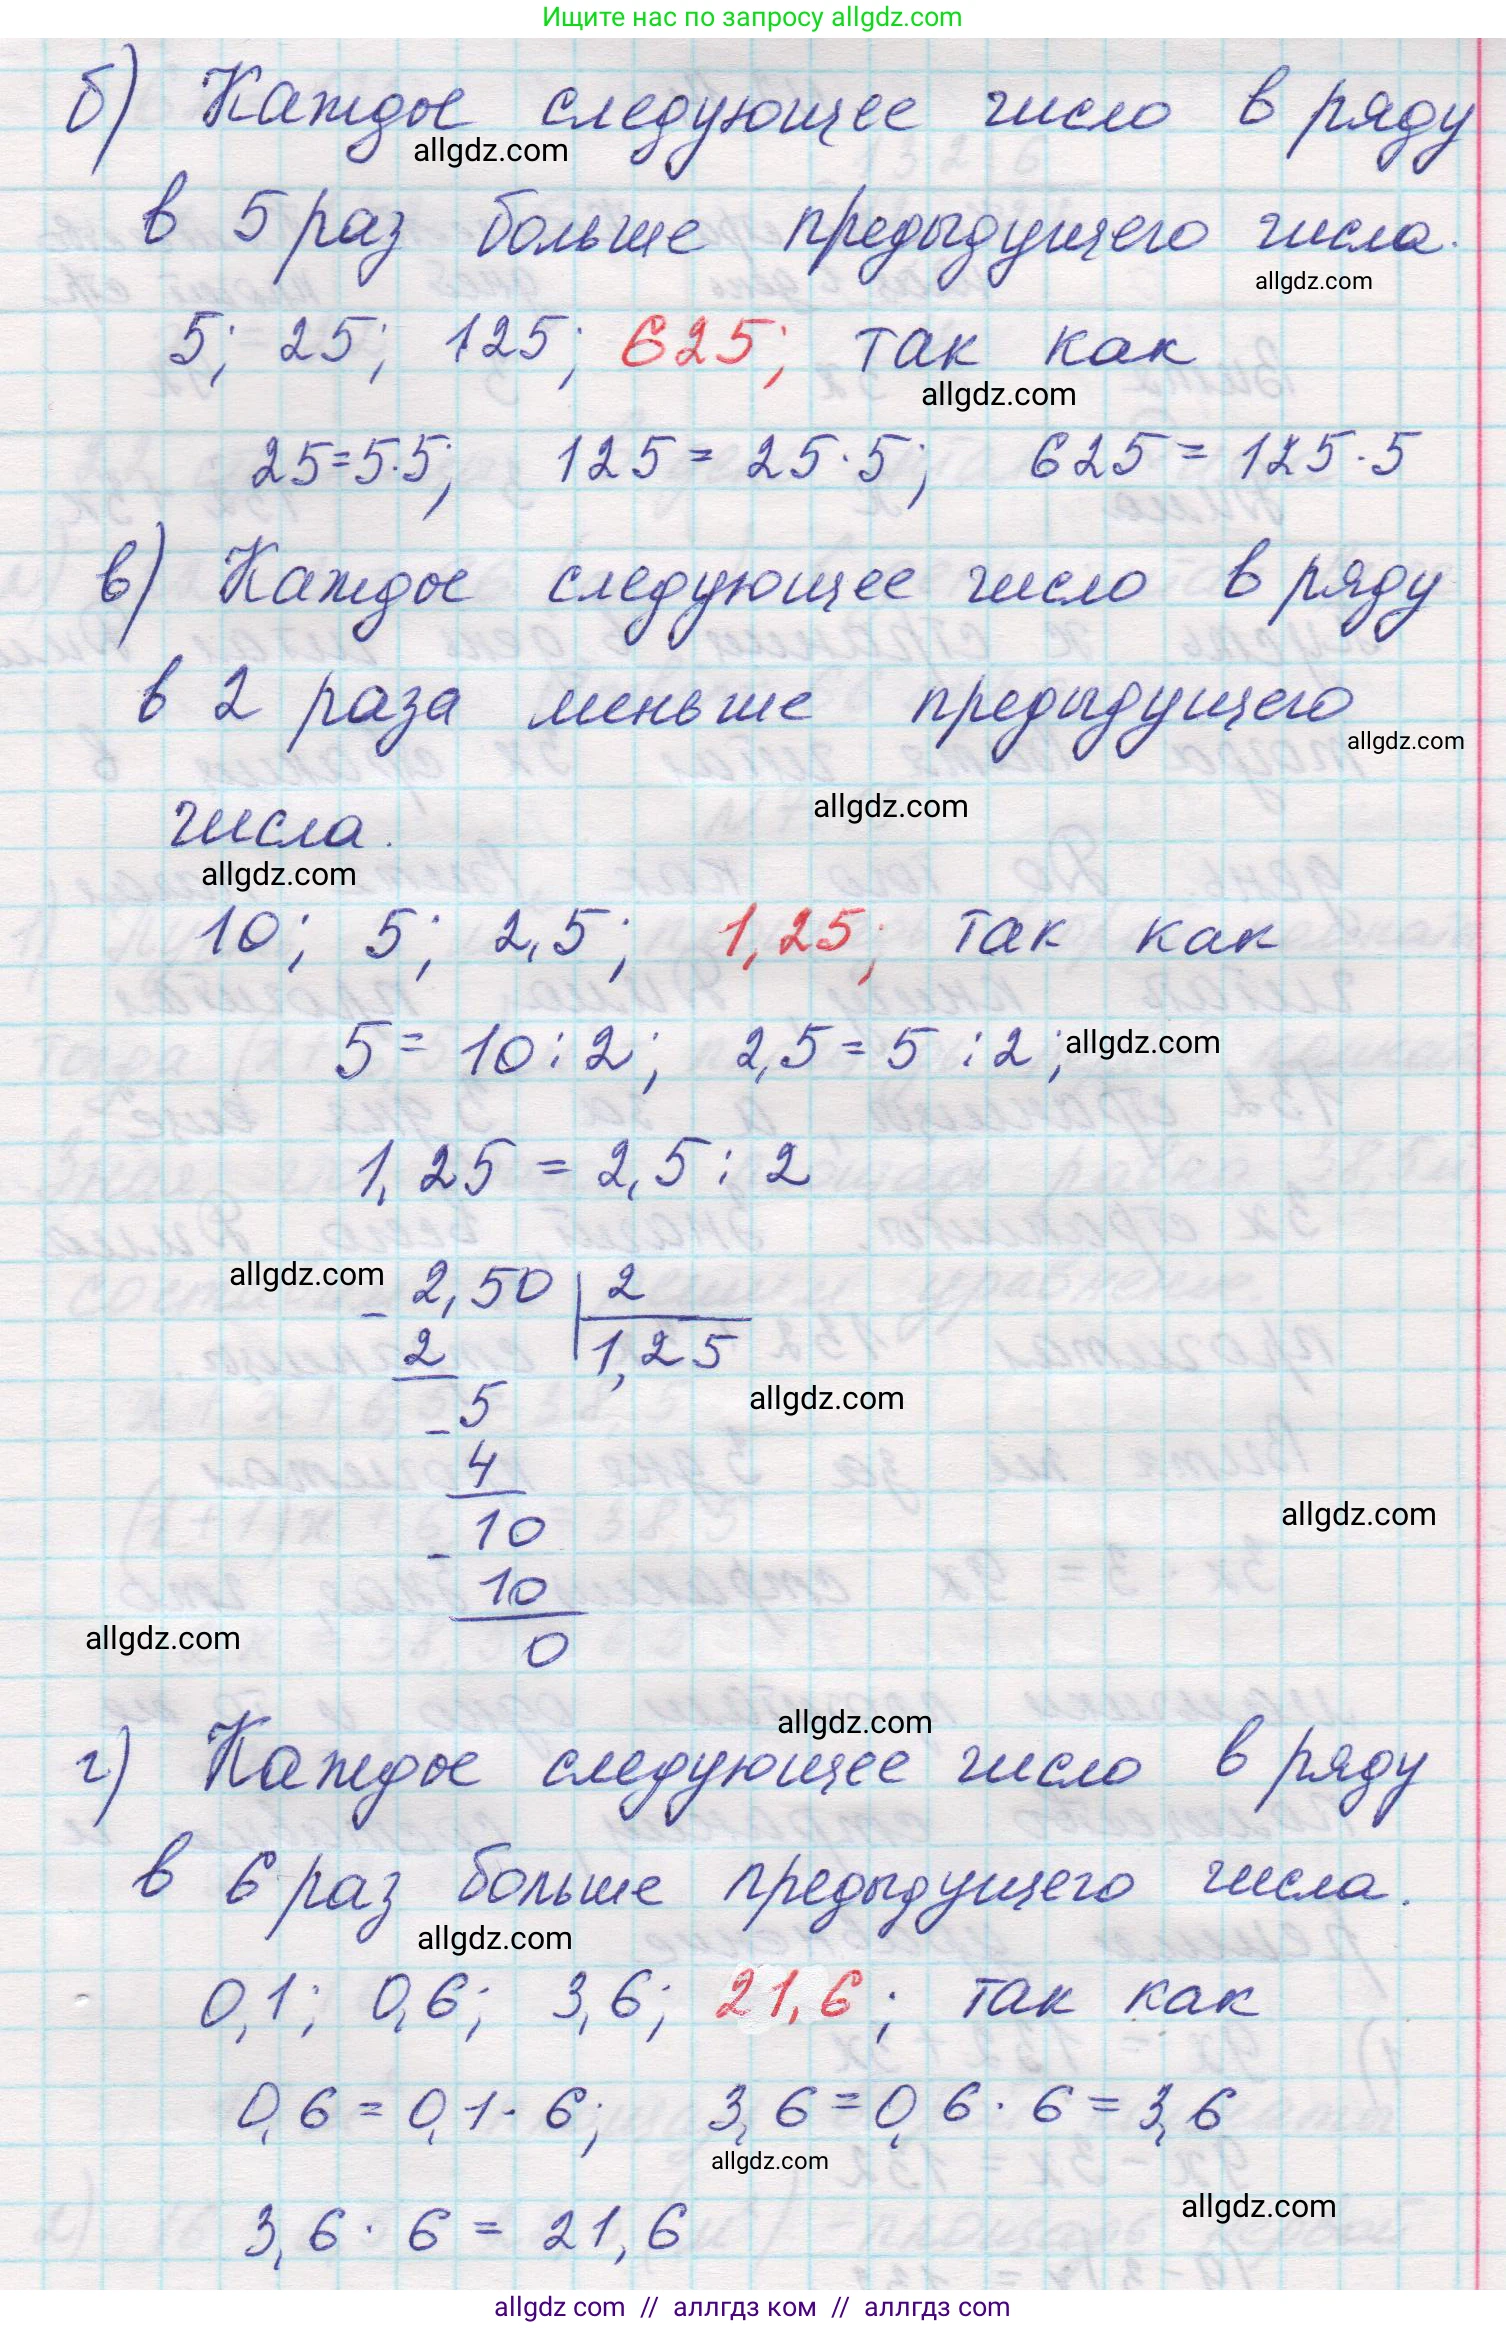 Ищите нас по запросу allgdz.com
б) Каждое следующее число в ряду
allgdz.com
в 5 раз больше предыдущего числа.
allgdz.com
5; 25; 125; 625; так как
allgdz.com
25=5·5; 125 = 25·5; 625 = 125·5
в) Каждое следующее число в ряду
в 2 раза меньше предыдущего
allgdz.com
allgdz.com
числа.
allgdz.com
10; 5; 2,5; 1,25; так как
5 = 10 : 2; 2,5 = 5 : 2;
allgdz.com
1,25 = 2,5 : 2
allgdz.com
- 2,50 | 2
2 1,25
allgdz.com
- 5
4
allgdz.com
- 10
10
allgdz.com
0
allgdz.com
г) Каждое следующее число в ряду
в 6 раз больше предыдущего числа.
allgdz.com
0,1; 0,6; 3,6; 21,6; так как
0,6 = 0,1 · 6; 3,6 = 0,6 · 6 = 3,6
allgdz.com
allgdz.com
3,6 · 6 = 21,6
allgdz com // аллгдз ком // аллгдз com